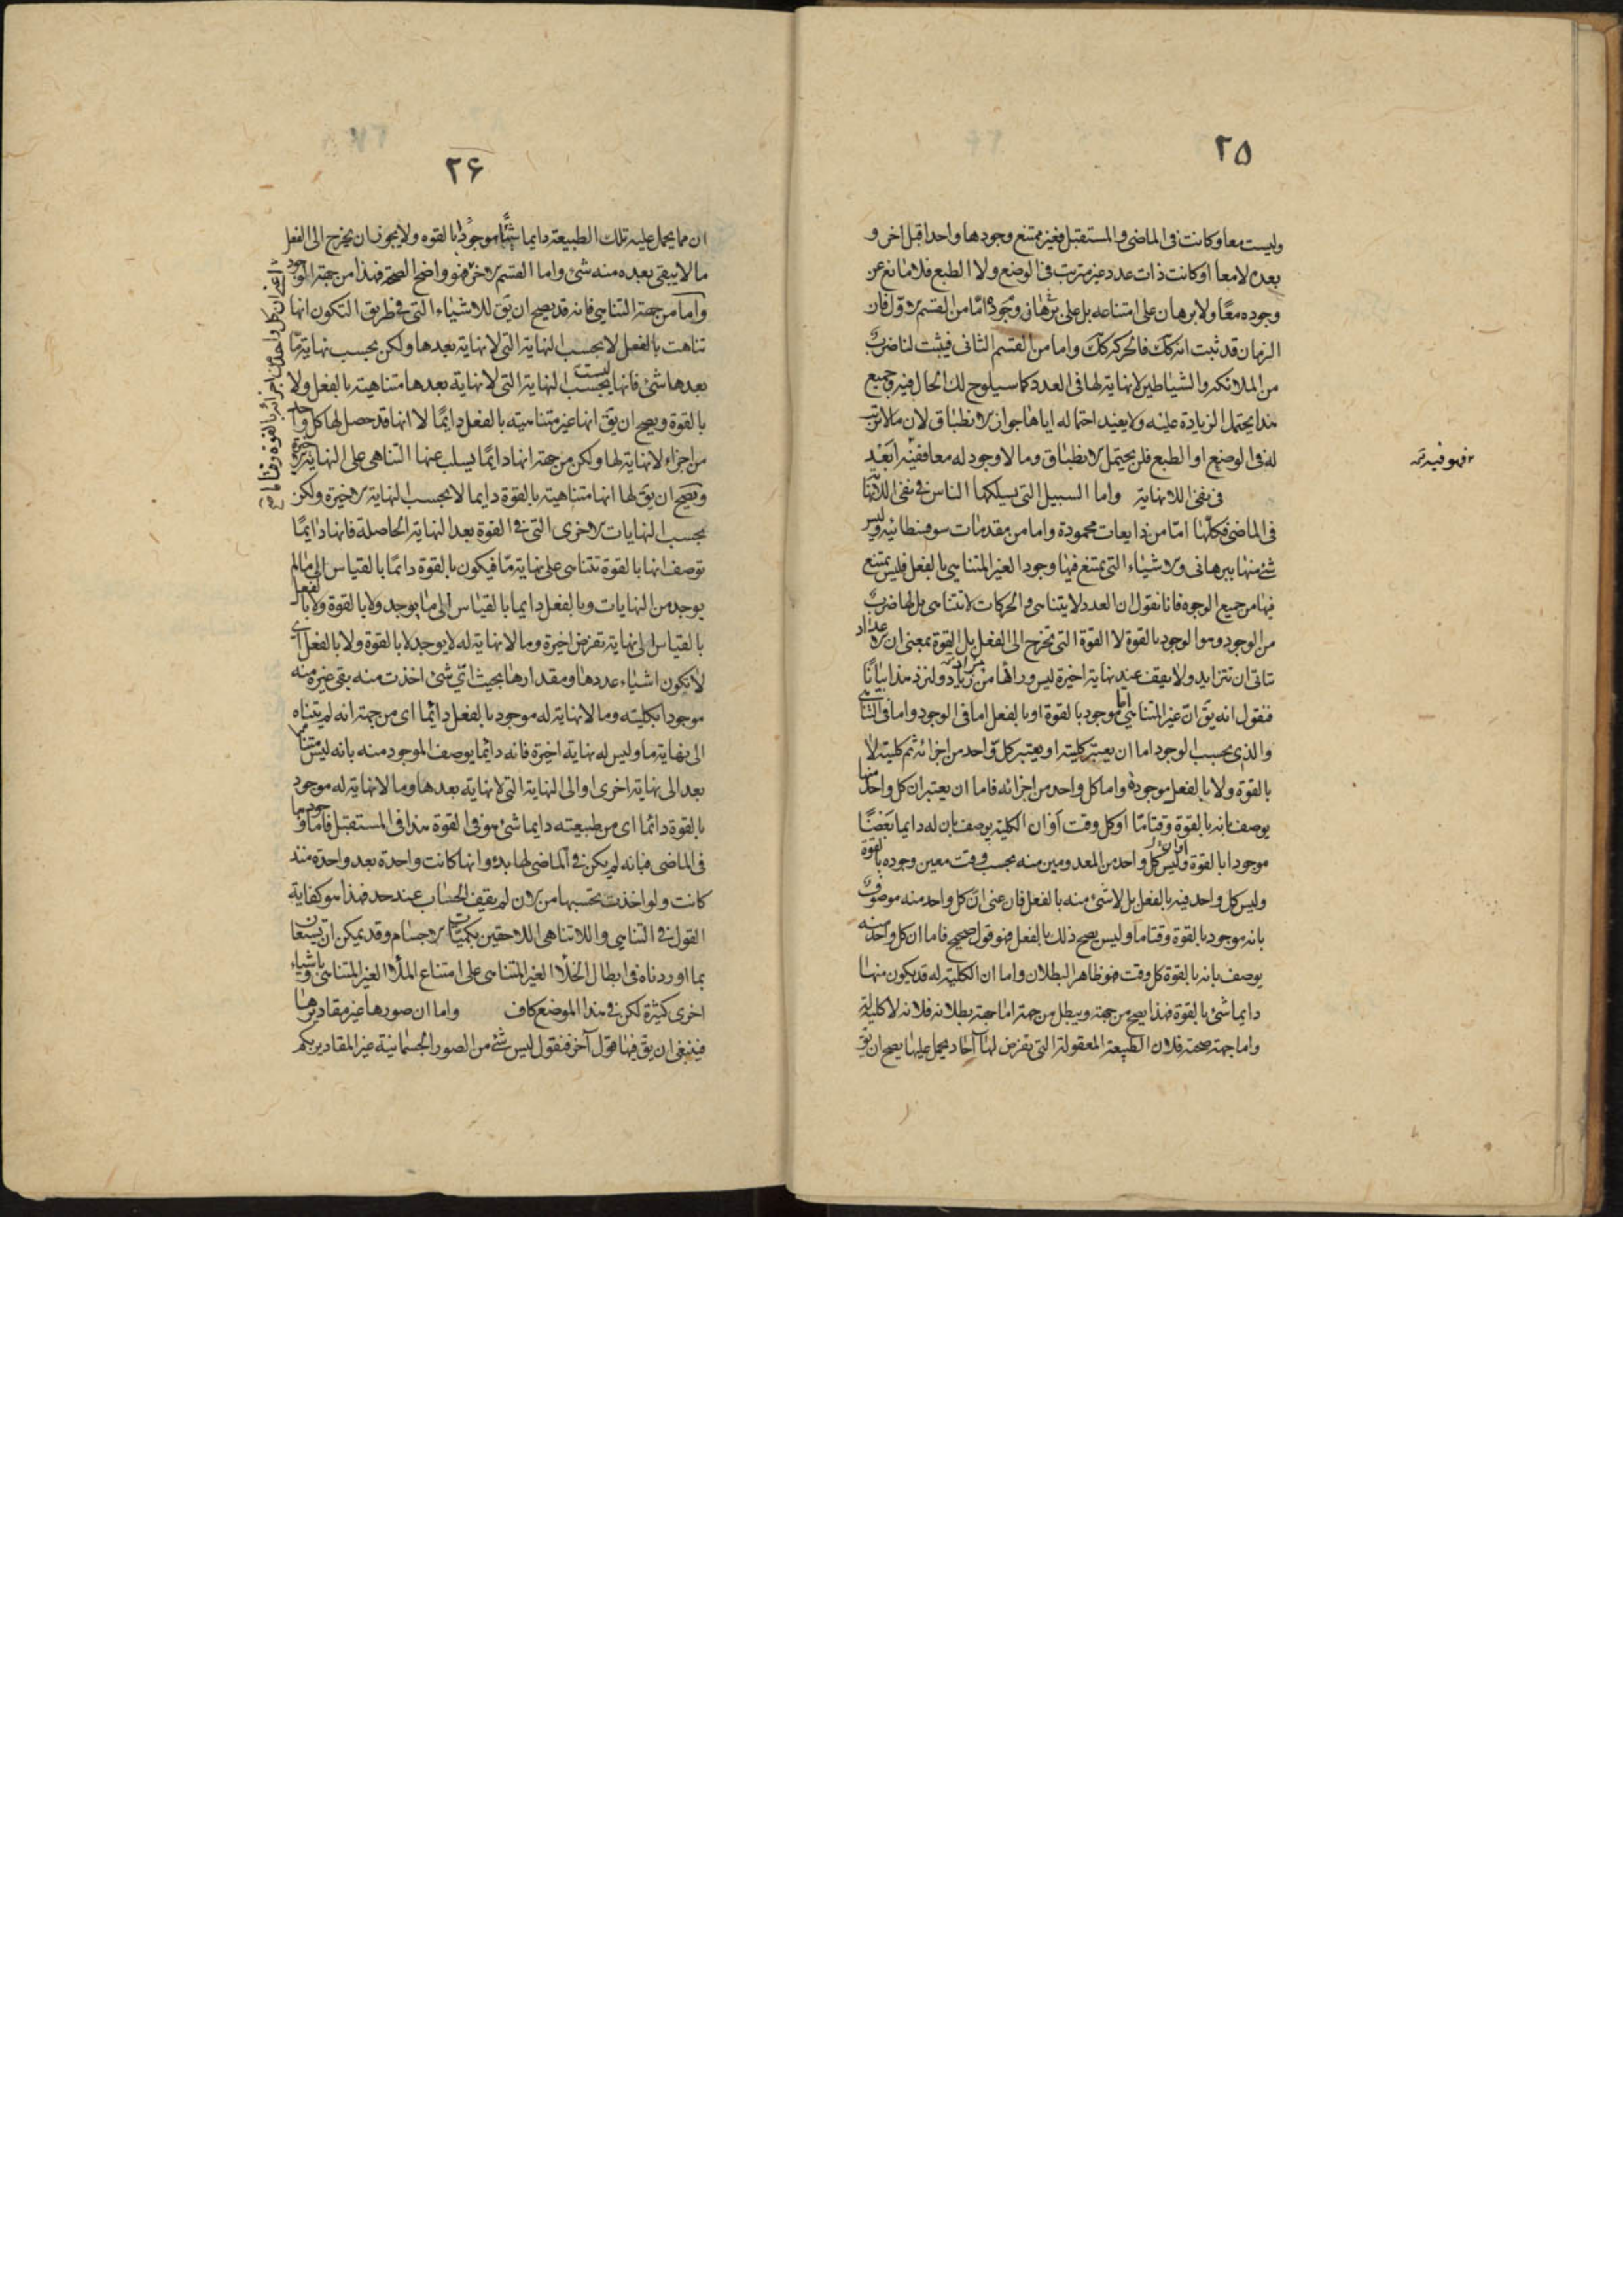 ٢۵
وليست معا وكانت فى الماضى والمستقبل فغير ممتنع وجودها واحدا قبل اخر و
بعده لا معا او كانت ذات عدد غير مترتب فى الوضع ولا الطبع فلا مانع عن
وجوده معًا ولا برهان على امتناعه بل على برهان وجوده اما من القسم الاول فان
الزمان قد ثبت انه كك فالحركة كك واما من القسم الثانى فيثبت لنا ضرب
من الملائكة والشياطين لا نهاية لها فى العدد كما سيلوح لك الحال فيه وجميع
هذا يحتمل الزيادة عليه ولا يفيد احتماله اياها جواز الانطباق لان ما لا ترتيب
له فى الوضع او الطبع فلن يحتمل الانطباق وما لا وجود له معا ففيه ابعد
٢ فهو فيه تمه
فى نفى اللانهاية واما السبيل التى يسلكها الناس فى نفى اللانهاية
فى الماضى فكلها اما من ذايعات محمودة واما من مقدمات سوفسطائيه وليس
شئ منها ببرهانى والاشياء التى يمتنع فيها وجود الغير المتناهى بالفعل فليس يمتنع
فيها من جميع الوجوه فانا نقول ان العدد لا يتناهى والحركات لا تتناهى بل لها ضرب
من الوجود وهو الوجود بالقوة لا القوة التى تخرج الى الفعل بل القوة بمعنى ان الاعداد
تتاتى ان تتزايد ولا يقف عند نهاية اخيرة ليس وراءها مزاد ولنزد هذا بيانا
فنقول انه يق ان غير المتناهى اما موجود بالقوة او بالفعل اما فى الوجود واما فى التناهى
والذى بحسب الوجود اما ان يعتبر كليته او يعتبر كل واحد من اجزائه ثم كليته لا
بالقوة ولا بالفعل موجودة واما كل واحد من اجزائه فاما ان يعتبر ان كل واحد منها
يوصف بانه بالقوة وقتا ما او كل وقت او ان الكلية يوصف بان له دايما بعضا
موجودا بالقوة وليس كل واحد من المعدومين منه بحسب وقت معين وجوده بالقوة
وليس كل واحد فيه بالفعل بل لا شئ منه بالفعل فان عنى ان كل واحد منه موصوف
بانه موجود بالقوة وقتا ما وليس يصح ذلك بالفعل فهو قول صحيح فاما ان كل واحد منه
يوصف بانه بالقوة كل وقت فهو ظاهر البطلان واما ان الكلية له قد يكون منها
دايما شئ بالقوة فهذا يصح من جهة ويبطل من جهة اما جهة بطلانه فلانه لا كلية له
واما جهة صحته فلان الطبيعة المعقولة التى تفرض لها آحاد يحمل عليها يصح ان يق
٢۶
ان مما يحمل عليه تلك الطبيعة دايما شيئا موجودا بالقوه ولا يجوز ان يخرج الى الفعل
ما لا يبقى بعده منه شئ واما القسم الاخر فهو واضح الصحة فهذا من جهة الوجود
واما من جهة التناهى فانه قد يصح ان يق للاشياء التى فى طريق التكون انها
تناهت بالفعل لا بحسب النهاية التى لا نهاية بعدها ولكن بحسب نهاية ما
بعدها شئ فانها ليست بحسب النهاية التى لا نهاية بعدها متناهية بالفعل ولا
بالقوة ويصح ان يق انها غير متناهية بالفعل دايما لا انها قد حصل لها كل واحد
من اجزاء لا نهاية لها ولكن من جهة انها دايما يسلب عنها التناهى على النهاية الاخيرة
ويصح ان يق لها انها متناهية بالقوة دايما لا بحسب النهاية الاخيرة ولكن
بحسب النهايات الاخرى التى فى القوة بعد النهاية الحاصلة فانها دايما
توصف انها بالقوة تتناهى على نهاية ما فيكون بالقوة دائما بالقياس الى ما لم
يوجد من النهايات وبالفعل دايما بالقياس الى ما يوجد ولا بالقوة ولا بالفعل
بالقياس الى نهاية تفرض اخيرة وما لا نهاية له لا يوجد لا بالقوة ولا بالفعل اى
لا تكون اشياء عددها ومقدارها بحيث اى شئ اخذت منه بقى غيره منه
موجودا بكليته وما لا نهاية له موجود بالفعل دائما اى من جهة انه لم يتناه
الى نهاية ما وليس له نهاية اخيرة فانه دائما يوصف الموجود منه بانه ليس متناهيا
بعد الى نهاية اخرى او الى النهاية التى لا نهاية بعدها وما لا نهاية له موجود
بالقوة دائما اى من طبيعته دايما شئ هو فى القوة هذا فى المستقبل فاما وجودها
فى الماضى فبانه لم يكن فى الماضى لها بدؤ وانها كانت واحدة بعد واحدة منذ
كانت ولو اخذت تحسبها من الان لم يقف الحساب عند حد فهذا هو كفاية
القول فى التناهى واللاتناهى اللاحقين بكميات الاجسام وقد يمكن ان يستعان
بما اوردناه فى ابطال الخلأ الغير المتناهى على امتناع الملأ الغير المتناهى وباشياء
اخرى كثيرة لكن فى هذا الموضع كاف واما ان صورها غير مقاديرها
فينبغى ان يق فيها قول آخر فنقول ليس شئ من الصور الجسمانية غير المقادير بكم
اعنى ان كل واحد من اجزائه بالقوة وقتا ما صح